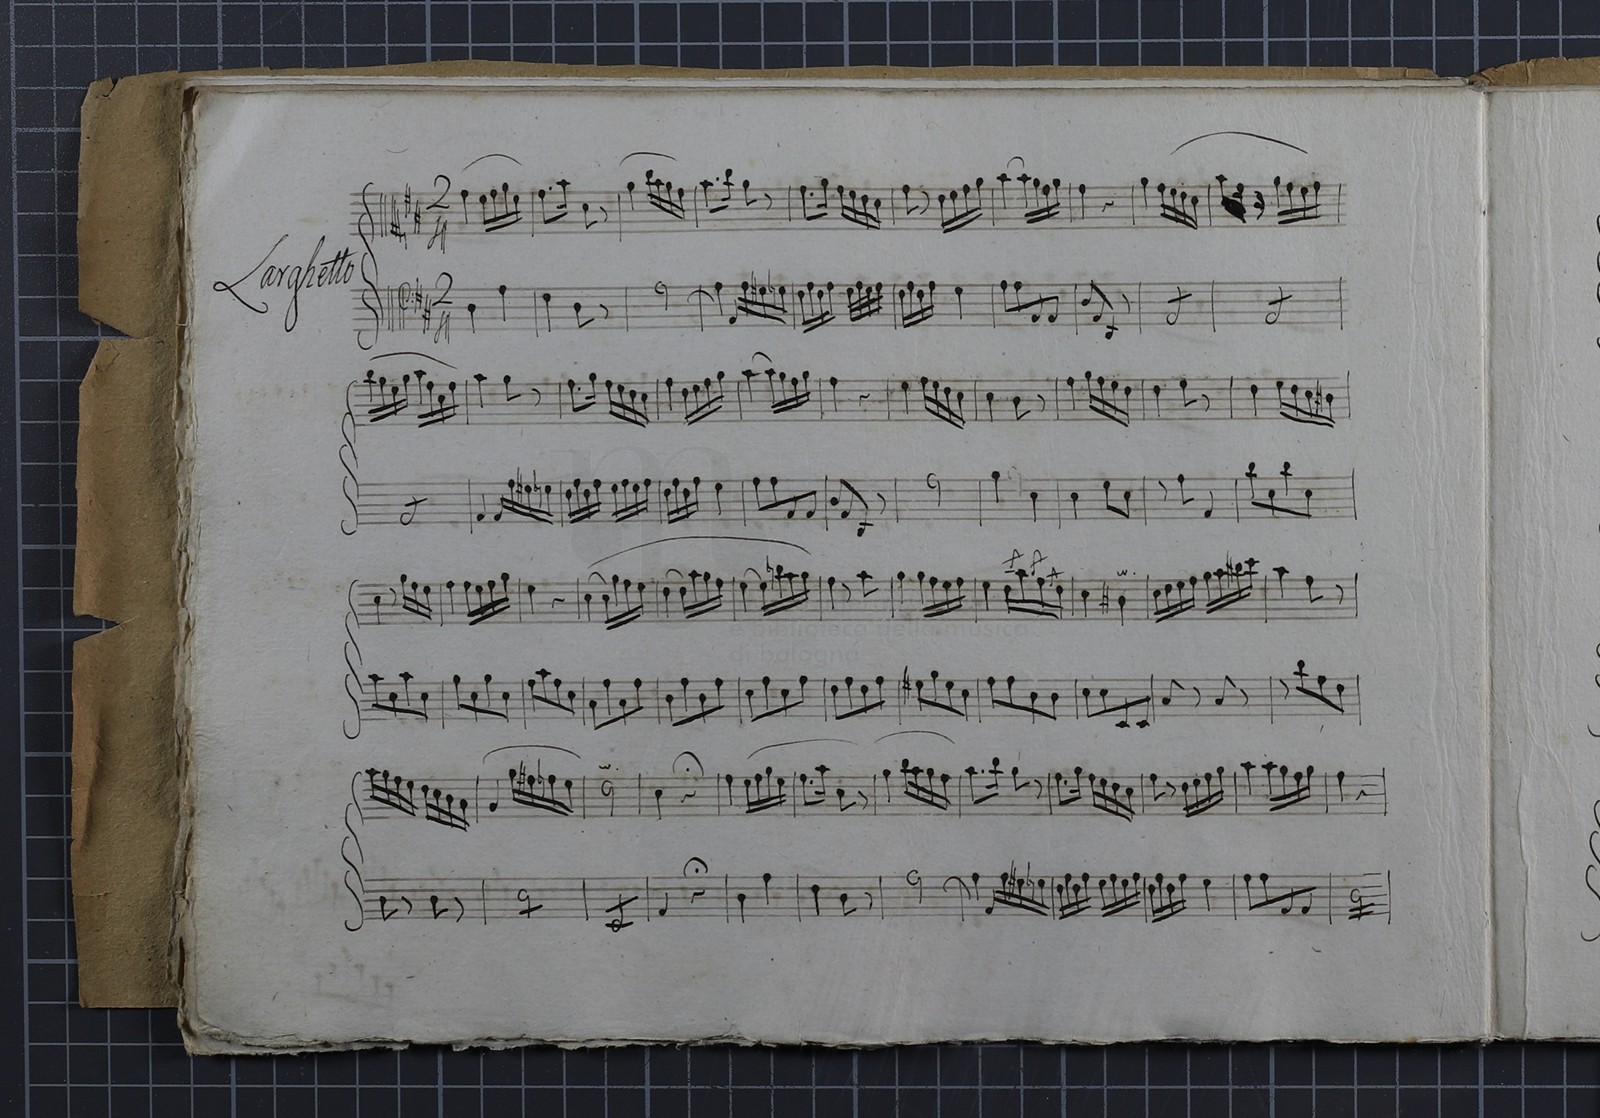 Larghetto
2
4
2
4
m
e biblioteca della musica
di bologna